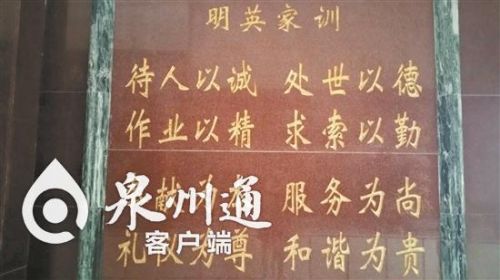 明英家训
待人以诚 处世以德
作业以精 求索以勤
献为 服务为尚
礼 为尊 和谐为贵
泉州通
客户端